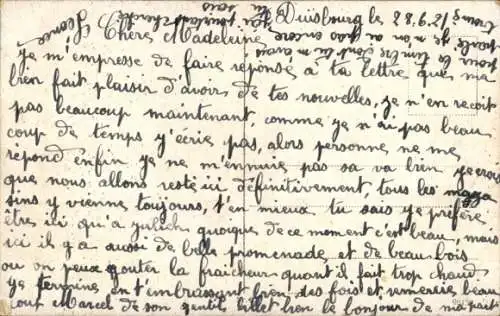 Duisbourg le 28.6.21
Chère Madeleine
je m'empresse de faire réponse à ta lettre que ma
bien fait plaisir d'avoir de tes nouvelles, je n'en recoit
pas beaucoup maintenant comme je n'ai pas beau
coup de temps j'écrie pas, alors personne ne me
répond enfin je ne m'ennuie pas sa va bien je crois
que nous allons resté ici définitivement, tous les maga
sins y vienne toujours, t'en mieux tu sais je préfère
êtres ici qu'a Julich quoique de ce moment c'est beau, mais
ici il y a aussi de belle promenade et de beau bois
ou on peux gouter la fraicheur quant il fait trop chaud
je termine en t'embrassant bien des fois et remercie beau
coup Marcel de son gentil billet bien le bonjour de ma part
Leonce